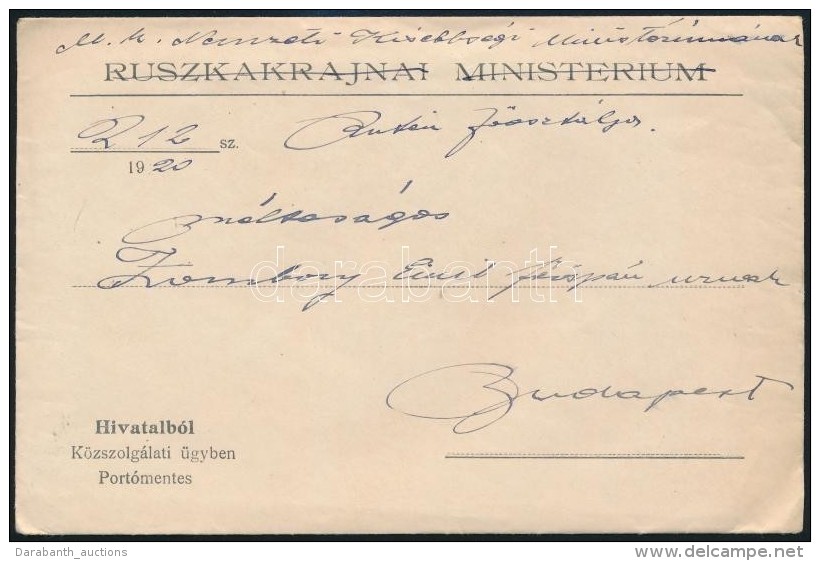 M. k. Nemzeti Kisebbségi Ministériumának
RUSZKAKRAJNAI MINISTERIUM
R 12 sz. Rutén főosztálya.
1920
Méltóságos
Zombory Emil főispán urnak
darabanth
Budapest
Hivatalból
Közszolgálati ügyben
Portómentes
Darabanth_auctions
www.delcampe.net